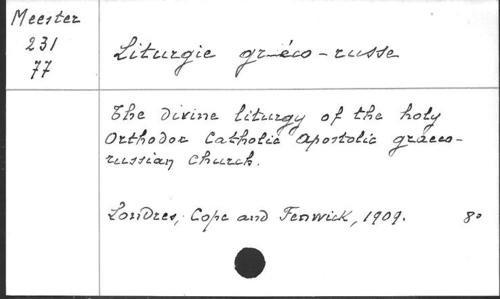 Meester
231
77
Liturgie gréco-russe
The divine liturgy of the holy
Orthodox Catholic Apostolic graeco-
russian Church.
Londres, Cope and Fenwick, 1909. 8°